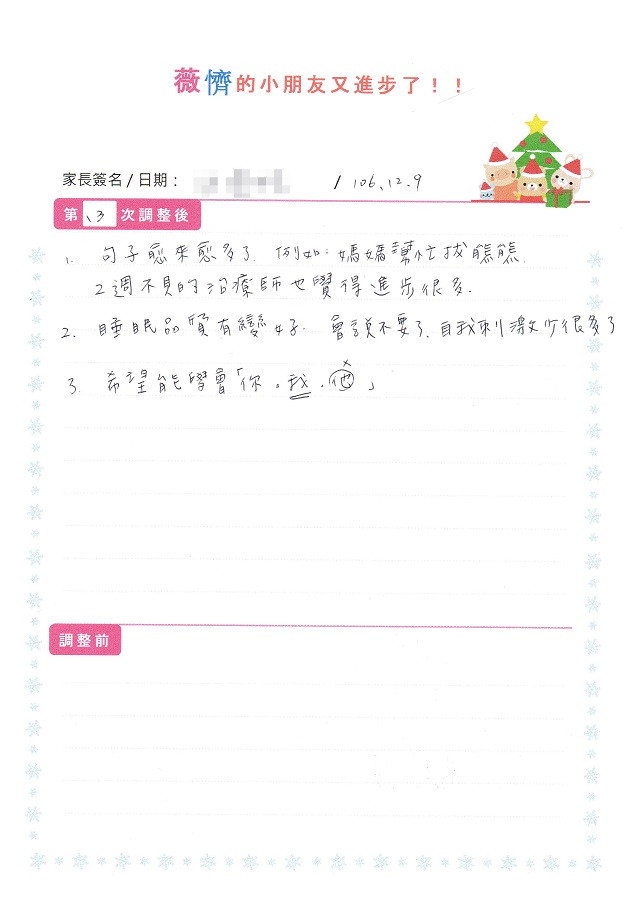 薇懠的小朋友又進步了！！
家長簽名/日期： / 106.12.9
第 3 次調整後
1. 句子愈來愈多了. 例如: 媽媽幫忙拔熊熊.
2週不見的治療師也覺得進步很多.
2. 睡眠品質有變好. 會說不要了. 自我刺激少很多了
3. 希望能學會「你。我.他」
×
調整前